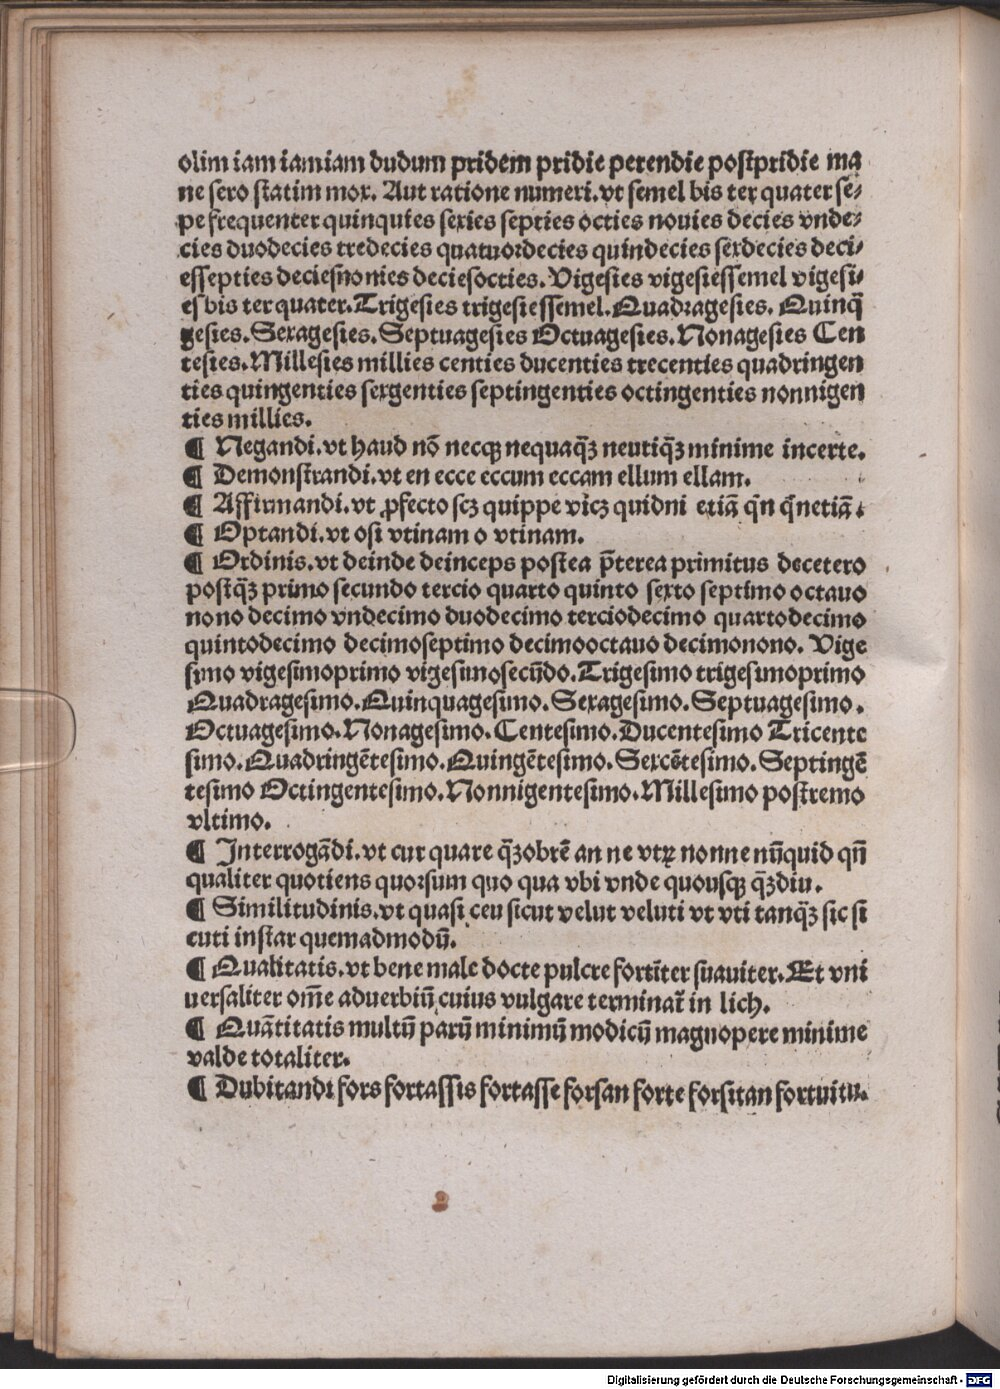 olim iam iamiam dudum pridem pridie perendie postpridie ma
ne sero statim mox. Aut ratione numeri. vt semel bis ter quater se⸗
pe frequenter quinquies sexies septies octies nouies decies vnde⸗
cies duodecies tredecies quatuordecies quindecies sexdecies deci⸗
essepties deciesnonies deciesocties. Vigesies vigesiessemel vigesi⸗
es bis ter quater. Trigesies trigesiessemel. Quadragesies. Quinq̄
gesies. Sexagesies. Septuagesies Octuagesies. Nonagesies Cen
tesies. Millesies millies centies ducenties trecenties quadringen
ties quingenties sexgenties septingenties octingenties nonnigen
ties millies.
¶ Negandi. vt haud nō necqꝫ nequaq̄ꝫ neutiq̄ꝫ minime incerte.
¶ Demonstrandi. vt en ecce eccum eccam ellum ellam.
¶ Affirmandi. vt ꝓfecto scꝫ quippe vicꝫ quidni etiā q̄n q̄netiā.
¶ Optandi. vt osi vtinam o vtinam.
¶ Ordinis. vt deinde deinceps postea p̄terea primitus decetero
postq̄ꝫ primo secundo tercio quarto quinto sexto septimo octauo
nono decimo vndecimo duodecimo terciodecimo quartodecimo
quintodecimo decimoseptimo decimooctauo decimonono. Vige
simo vigesimoprimo vigesimosecūdo. Trigesimo trigesimoprimo
Quadragesimo. Quinquagesimo. Sexagesimo. Septuagesimo.
Octuagesimo. Nonagesimo. Centesimo. Ducentesimo Tricente
simo. Quadringētesimo. Quingētesimo. Sexcētesimo. Septingē
tesimo Octingentesimo. Nonnigentesimo. Millesimo postremo
vltimo.
¶ Interrogādi. vt cur quare q̄ꝫobrē an ne vtꝝ nonne nūquid qn̄
qualiter quotiens quorsum quo qua vbi vnde quousqꝫ q̄ꝫdiu.
¶ Similitudinis. vt quasi ceu sicut velut veluti vt vti tanq̄ꝫ sic si
cuti instar quemadmodū.
¶ Qualitatis. vt bene male docte pulcre fortit̄er suauiter. Et vni
uersaliter om̄e aduerbiū cuius vulgare terminat̄ in lich.
¶ Quātitatis multū parū minimū modicū magnopere minime
valde totaliter.
¶ Dubitandi fors fortassis fortasse forsan forte forsitan fortuitu.
Digitalisierung gefördert durch die Deutsche Forschungsgemeinschaft - DFG